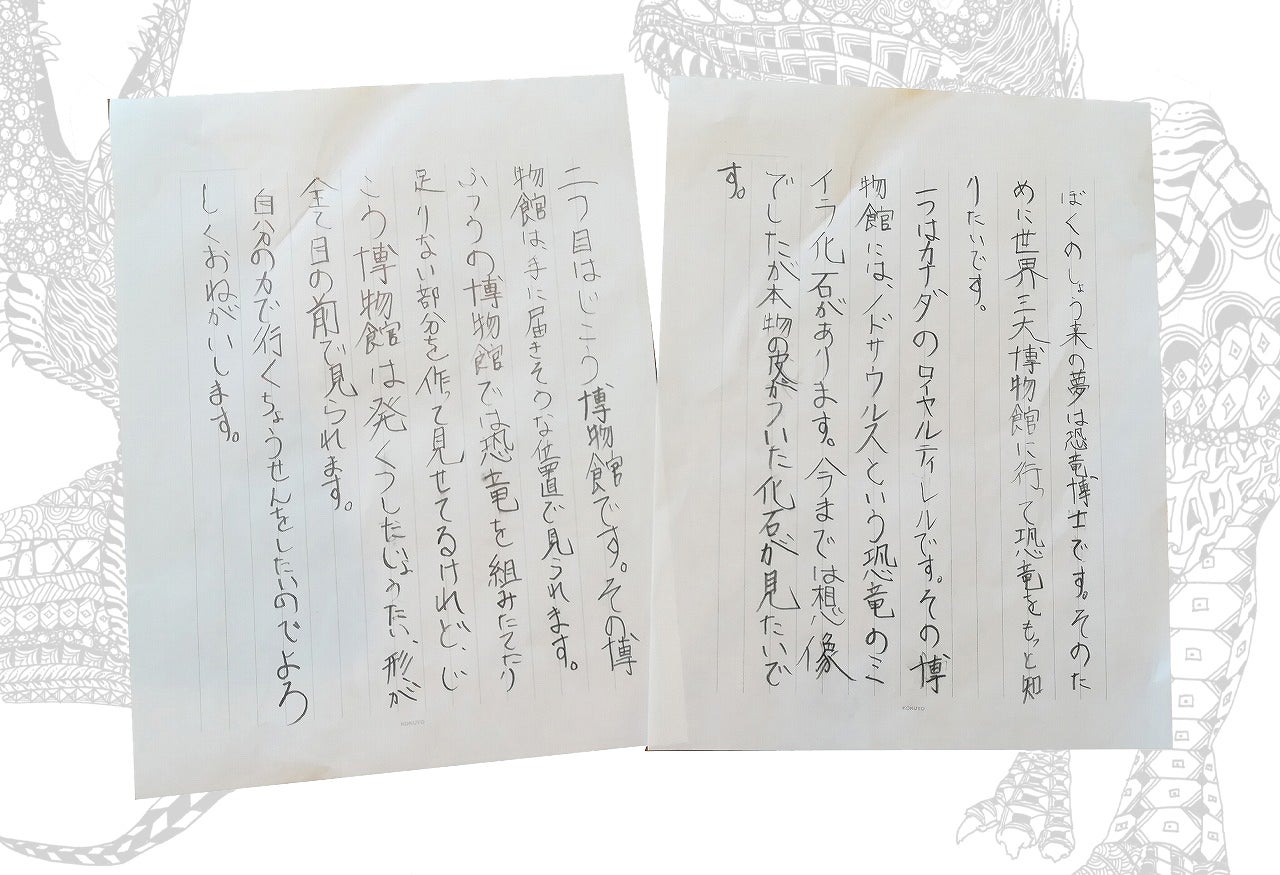 ぼくのしょう来の夢は恐竜博士です。そのた
めに世界三大博物館に行って恐竜をもっと知
りたいです。
一つはカナダのロイヤルティレルです。その博
物館には、ノドサウルスという恐竜のミ
イラ化石があります。今までは想像
でしたが本物の皮がついた化石が見たいで
す。
KOKUYO
二つ目はじこう博物館です。その博
物館は、手に届きそうな位置で見られます。
ふつうの博物館では恐竜を組みたてたり
足りない部分を作って見せてるけれど、じ
こう博物館は発くつしたじょうたい、形が
全て目の前で見られます。
自分の力で行くちょうせんをしたいのでよろ
しくおねがいします。
KOKUYO